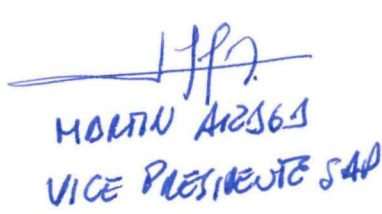 MARTIN AIZAGA
VICE PRESIDENTE SAP